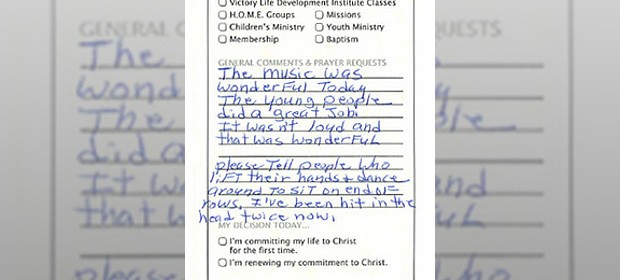 Victory Life Development Institute Classes
H.O.M.E. Groups Missions
Children's Ministry Youth Ministry
Membership Baptism
GENERAL COMMENTS & PRAYER REQUESTS
The music was
wonderful Today
The young people
did a great Job.
It wasn't loyd and
that was wonderful
please Tell people who
lift their hands & dance
around to sit on end of
rows, I've been hit in the
head twice now.
MY DECISION TODAY...
I'm committing my life to Christ
for the first time.
I'm renewing my commitment to Christ.